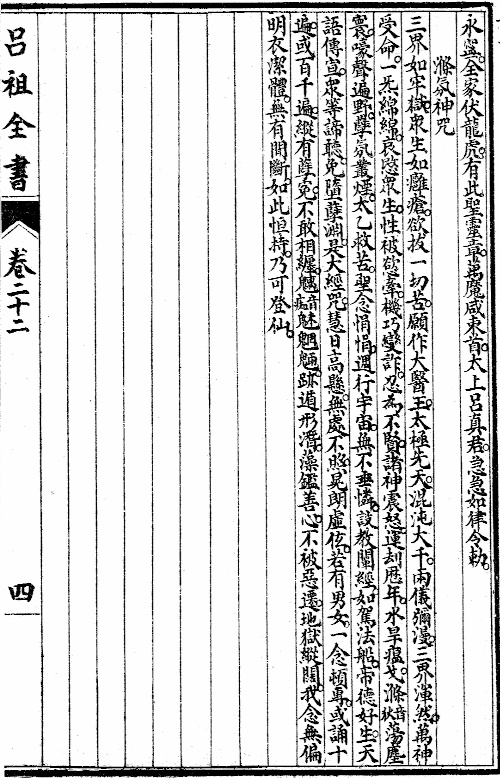 永鎣。全家伏龍虎。有此聖靈章。萬魔咸束首。太上呂真君。急急如律令勅。
滌氛神咒
三界如牢獄。衆生如癰瘡。欲拔一切苦。願作大醫王。太極先天。混沌大千。兩儀彌漫。三界渾然。萬神
受命。一炁綿綿。哀愍衆生。性被慾牽。機巧變詐。忍為不賢。諸神震怒。運刦歷年。水旱瘟火。滌音狄蕩塵
寰。嚎聲遍野。孽氛叢煙。太乙救苦。聖念悁悁。遇行宇宙。無不垂憐。談教闡經。如駕法船。帝德好生。天
語傳宣。衆等諦聽。免墮孽淵。是大經咒。慧日高懸。無處不照。晃朗虛弦。若有男女。一念頓專。或誦十
遍。或百千遍。縱有孽冤。不敢相纏。魑音痴魅魍魎。跡遁形潛。藻鑑善心。不被惡遷。地獄縱闊。我念無偏
明衣潔體。無有間斷。如此恒持。乃可登仙。
呂祖全書
卷二十二
四